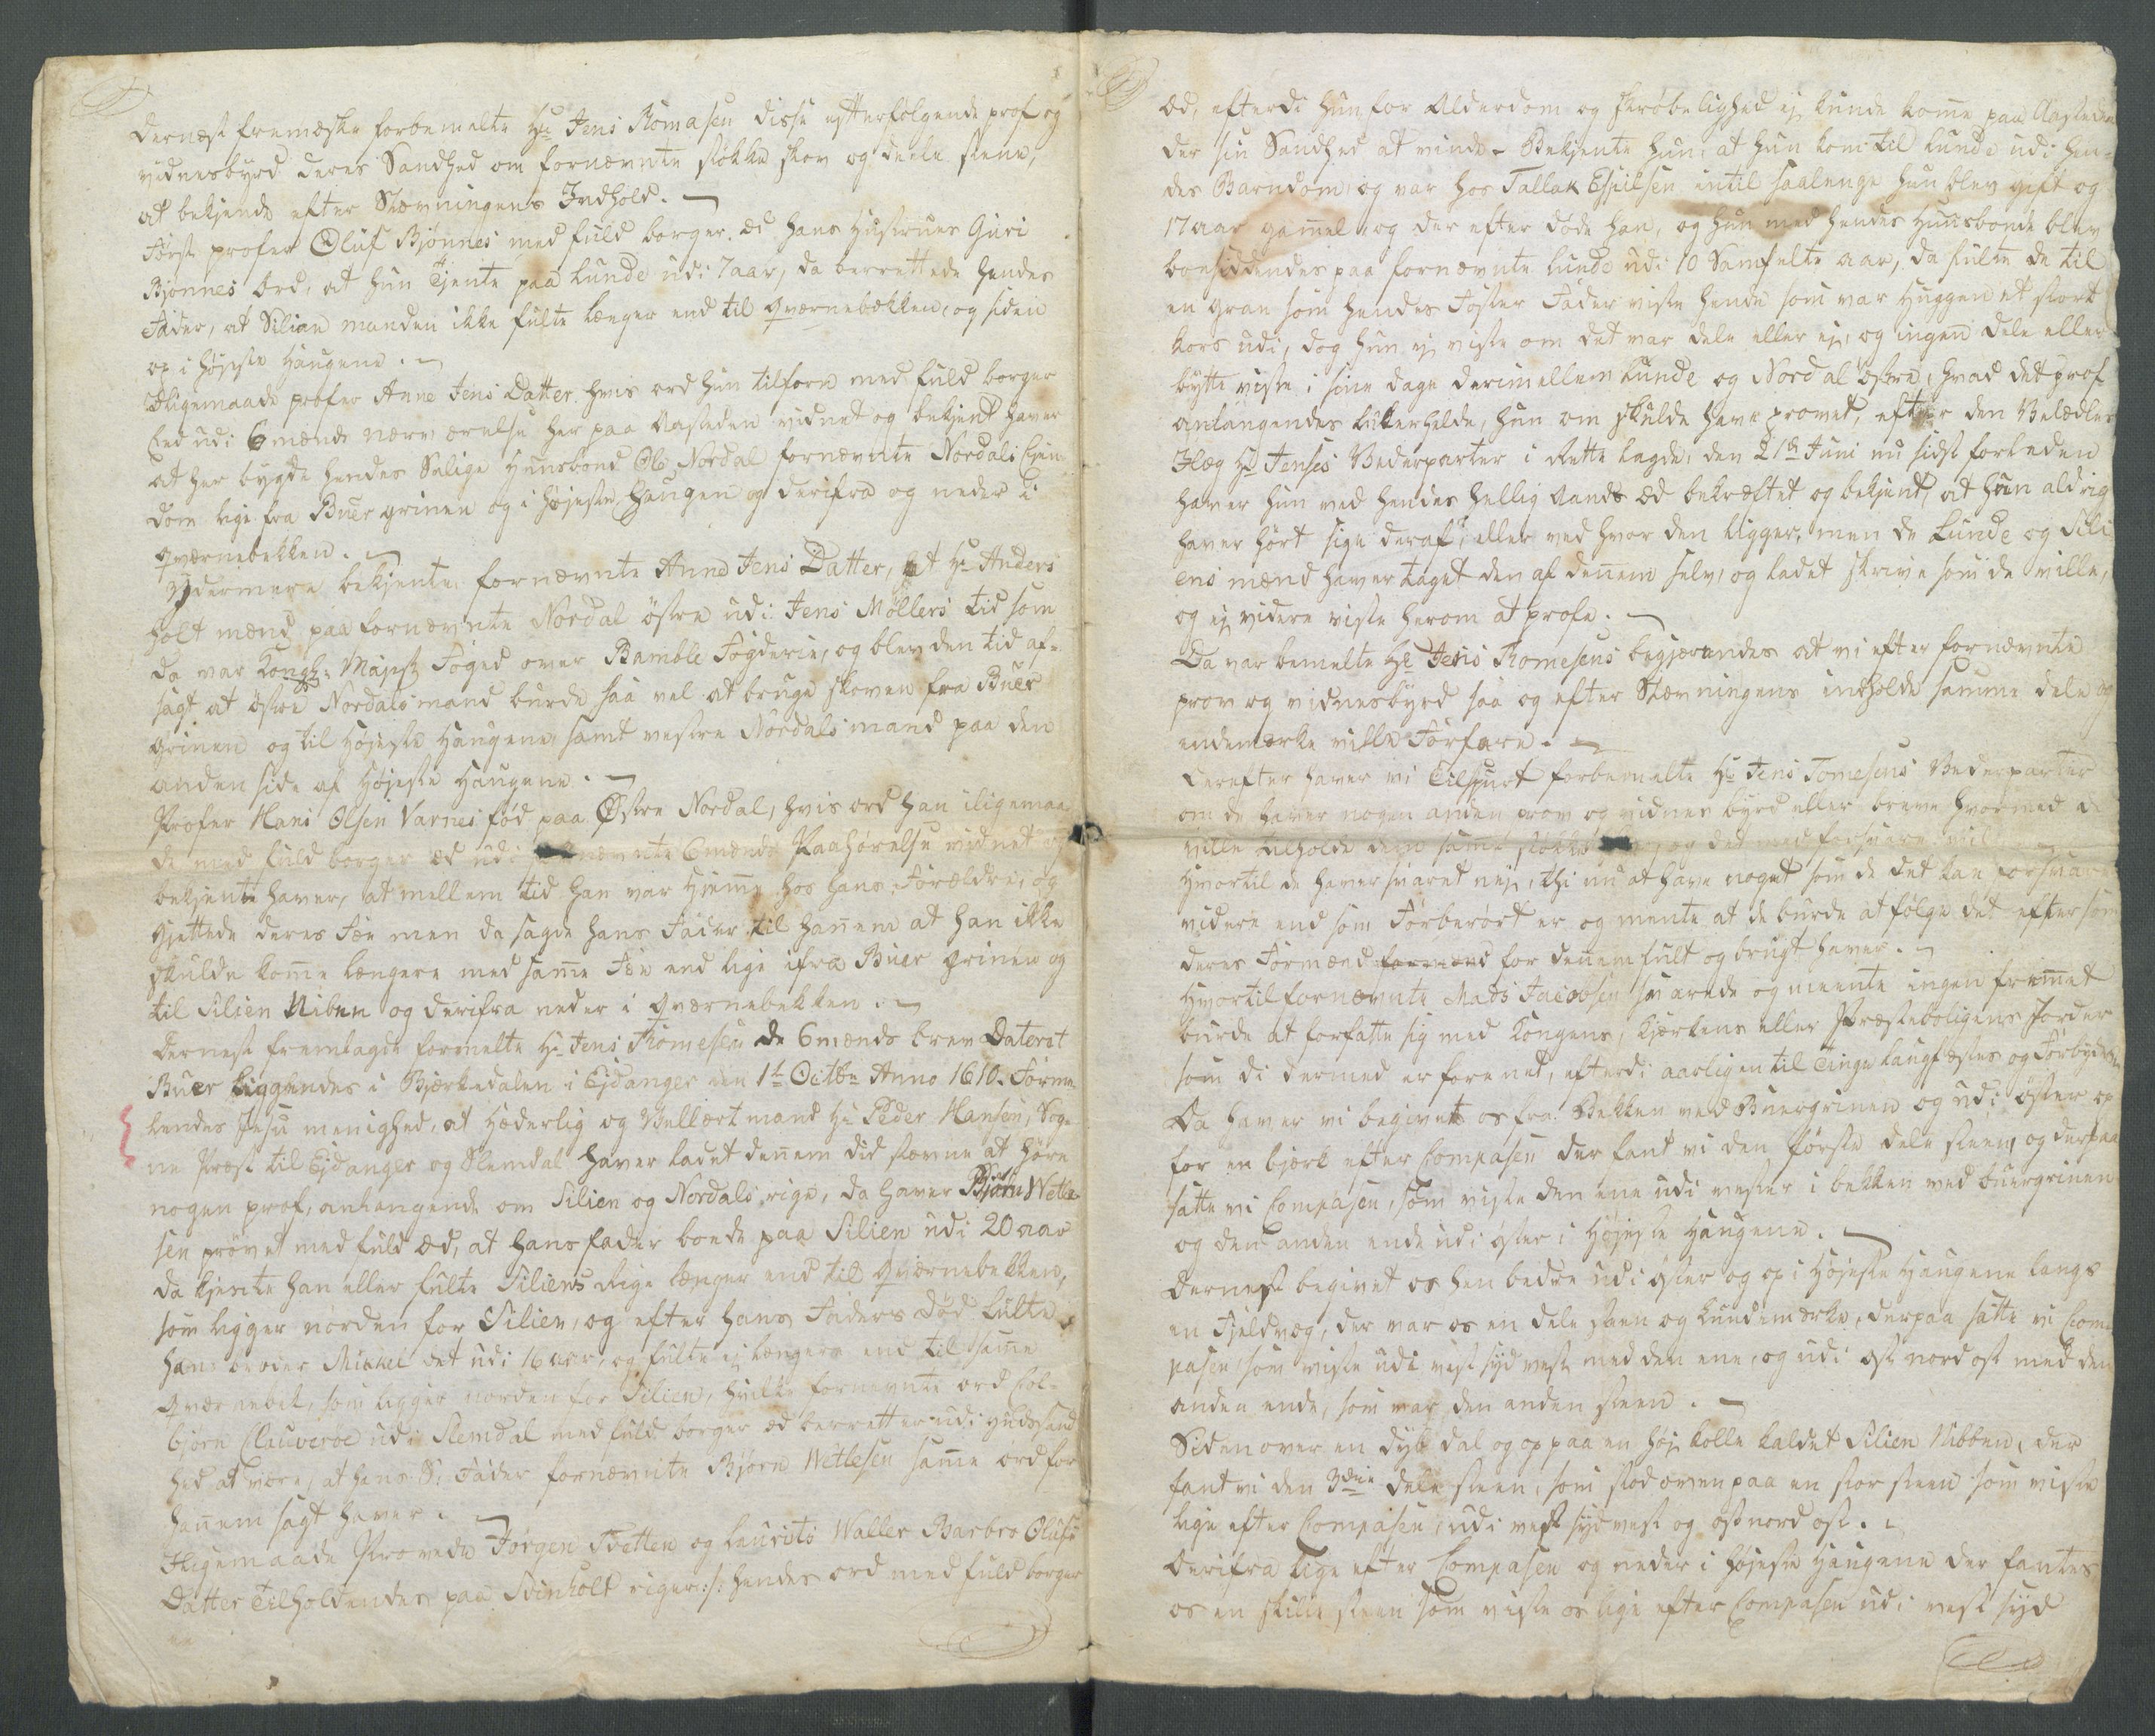 dernæst fremæske forbemelte Hr Jens Tomasen disse efterfølgende prof og
vidnesbyrd deres Sandhed om fornævnte støkke skov og deele stene,
at bekjende efter Stævningens Indhold.
Først profer Oluf Bjønnes med fuld borger æd hans Hustrues Guri
Bjønnes ord, at hun tjente paa Lunde udi 7 aar, da berettede hendes
Fader, at Silian manden ikke fulte længer end til Qværnebekken, og siden
op i højeste Haugene.
Iligemaade profer Anne Jens Datter, hvis ord hun tilforn med fuld borger
Eed udi 6 mænds nærværelse her paa Aasteden vidnet og bekjent haver
at her bygte hendes Salige Huusbond Ole Nordal fornævnte Nordals Ejen
dom lige fra Buer grinen og i højeste Haugen og derifra og neder i
Qværnebekken.
Ydermere bekjente fornævnte Anne Jens Datter, at Hr Anders
holt mænd paa fornævnte Nordal østre udi Jens Møllers tid som
da var Kongl: Majest Foged over Bamble Fogderie, og blev den tid af-
sagt at østre Nordals mand burde saa vel at bruge skoven fra Buer
Grinen og til Højeste Haugene, samt vestre Nordals mand paa den
anden side af Højeste Haugene.
Profer Hans Olsen Varnes fød paa Østre Nordal, hvis ord han iligemaa
de med fuld borger æd udi fornævnte 6 mænds Paahørelse vidnet og
bekjente haver, at mellem tid han var Hjemme hos hans Forældre, og
gjettede deres Fæe men da sagde hans Fader til hannem at han ikke
skulde komme længere med samme Fæe end lige ifra Buer Grinen og
til Silien Niben og derifra neder i Qværnebekken.
Dernest fremlagde formelte Hr Jens Tomesen de 6 mænds brev Daterit
Buer liggendes i Bjerkedalen i Ejdanger den 1t Octbr Anno 1610. Forme-
lendes Jesu menighed, at Hæderlig og Vellært mand Hr Peder Hansen, Sog-
ne Præst til Ejdanger og Slemdal haver ladet dennem did stævne at høre
nogen prof, anlangende om Silien og Nordals rige, da haver Bjørn Wetle-
sen prøvet med fuld æd, at hans fader boede paa Silien udi 20 aar
da kjente han eller fulte Siliens Rige længer end til Qværnebekken,
som ligger norden for Silien, og efter hans Faders død fulte
hans broder Mickel det udi 16 aar, og fulte ej længere end til samme
Qværnebek, som ligger norden for Silien, hvilke fornevnte ord Col-
bjørn Clauverøe udi Slemdal med fuld borger æd berretter udi Gudssand
hed at være, at hans S: Fader fornævnte Bjørn Wetlesen samme ord for
hannem sagt haver.
Iligemaade Prevede Jørgen Tvetten og Laurits Waller Barbro Olufs
Datter Tilholdendes paa Svinholt riger:/: hendes ord med fuld borger
æd, efterdi hun for Alderdom og skrøbelighed ej kunde komme paa Aasteden
der sin Sandhed at vinde - Bekjente hun, at hun kom til Lunde udi hen-
des Barndom, og var hos Tallak Espilsen intil saalenge hun blev gift og
17 aar gammel og der efter døde han, og hun med hendes Huusbonde blev
boesiddendes paa fornævnte Lunde udi 10 Samfelte aar, da fulte de til
en gran som hendes Foster Fader viste hende som var Huggen et stort
kors udi, dog hun ej viste om det var dele eller ej, og ingen dele eller
bytte viste i sine dage derimellem Lunde og Nordal østre, hvad det prof
anlangendes hun om skulde have provet, efter den
Hr Jenses Vederparter i Rette lagde, den 21de Juni nu sidst forleden
haver hun ved hendes hellig Aands æd bekræftet og bekjent, at hun aldrig
haver hørt sige deraf, eller ved hvor den ligger, men de Lunde og Sili
ens mænd haver taget den af dennem selv, og ladet skrive som de ville,
og ej videre viste herom at profe.
Da var bemelte Hr Jens Tomesens begjærendes at vi efter fornævnte
prov og vidnesbyrd saa og efter Stævningens indholde samme dele og
endemerke ville Forfare.
Derefter haver vi Tilspurt forbemelte Hr Jens Tomesens Vederparter
om de haver nogen anden prov og vidnes byrd eller breve hvormed de
ville tilholde dem samme støkke og det med forsvare vil
Hvortil de haver svaret nej, thi nu at have noget som de det kan forsvare
videre end som Forberørt er og mente at de burde at følge det eftersom
deres Formænd formænd for dennem fult og brugt haver.
Hvortil fornævnte Mads Jacobsen svarede og meente ingen fremmet
burde at forfatte sig med Kongens, Kjerkens eller Præsteboligens Jorder
som di dermed er forenet, efterdi aarligen til Tinge laugfæstes og Forbydes
Da haver vi begivet os fra Bekken ved Buergrinen og udi øster op
for en bjerk efter Compasen der fant vi den første dele steen, og derpaa
satte vi Compasen, som viste den ene udi vester i bekken ved buergrinen
og den anden ende udi øster i Højeste Haugene.
Dernest begivet os hen bedre udi øster og op i Højeste Haugene langs
en Fjeldveg, der var os en dele steen og kundemerke, derpaa satte vi Com-
pasen, som viste udi vest syd vest med den ene, og udi ost nord ost med den
anden ende, som var den anden steen.
Siden over en dyb dal og op paa en høj kolle kaldet Silien Nibben, der
fant vi den 3die dele steen, som stod oven paa en stor steen som viste
lige efter Compasen, udi vest syd vest og ost nord ost.
Derifra lige efter Compasen og neder i højeste Haugene der fantes
os en skille steen som viste os lige efter Compasen udi vest syd